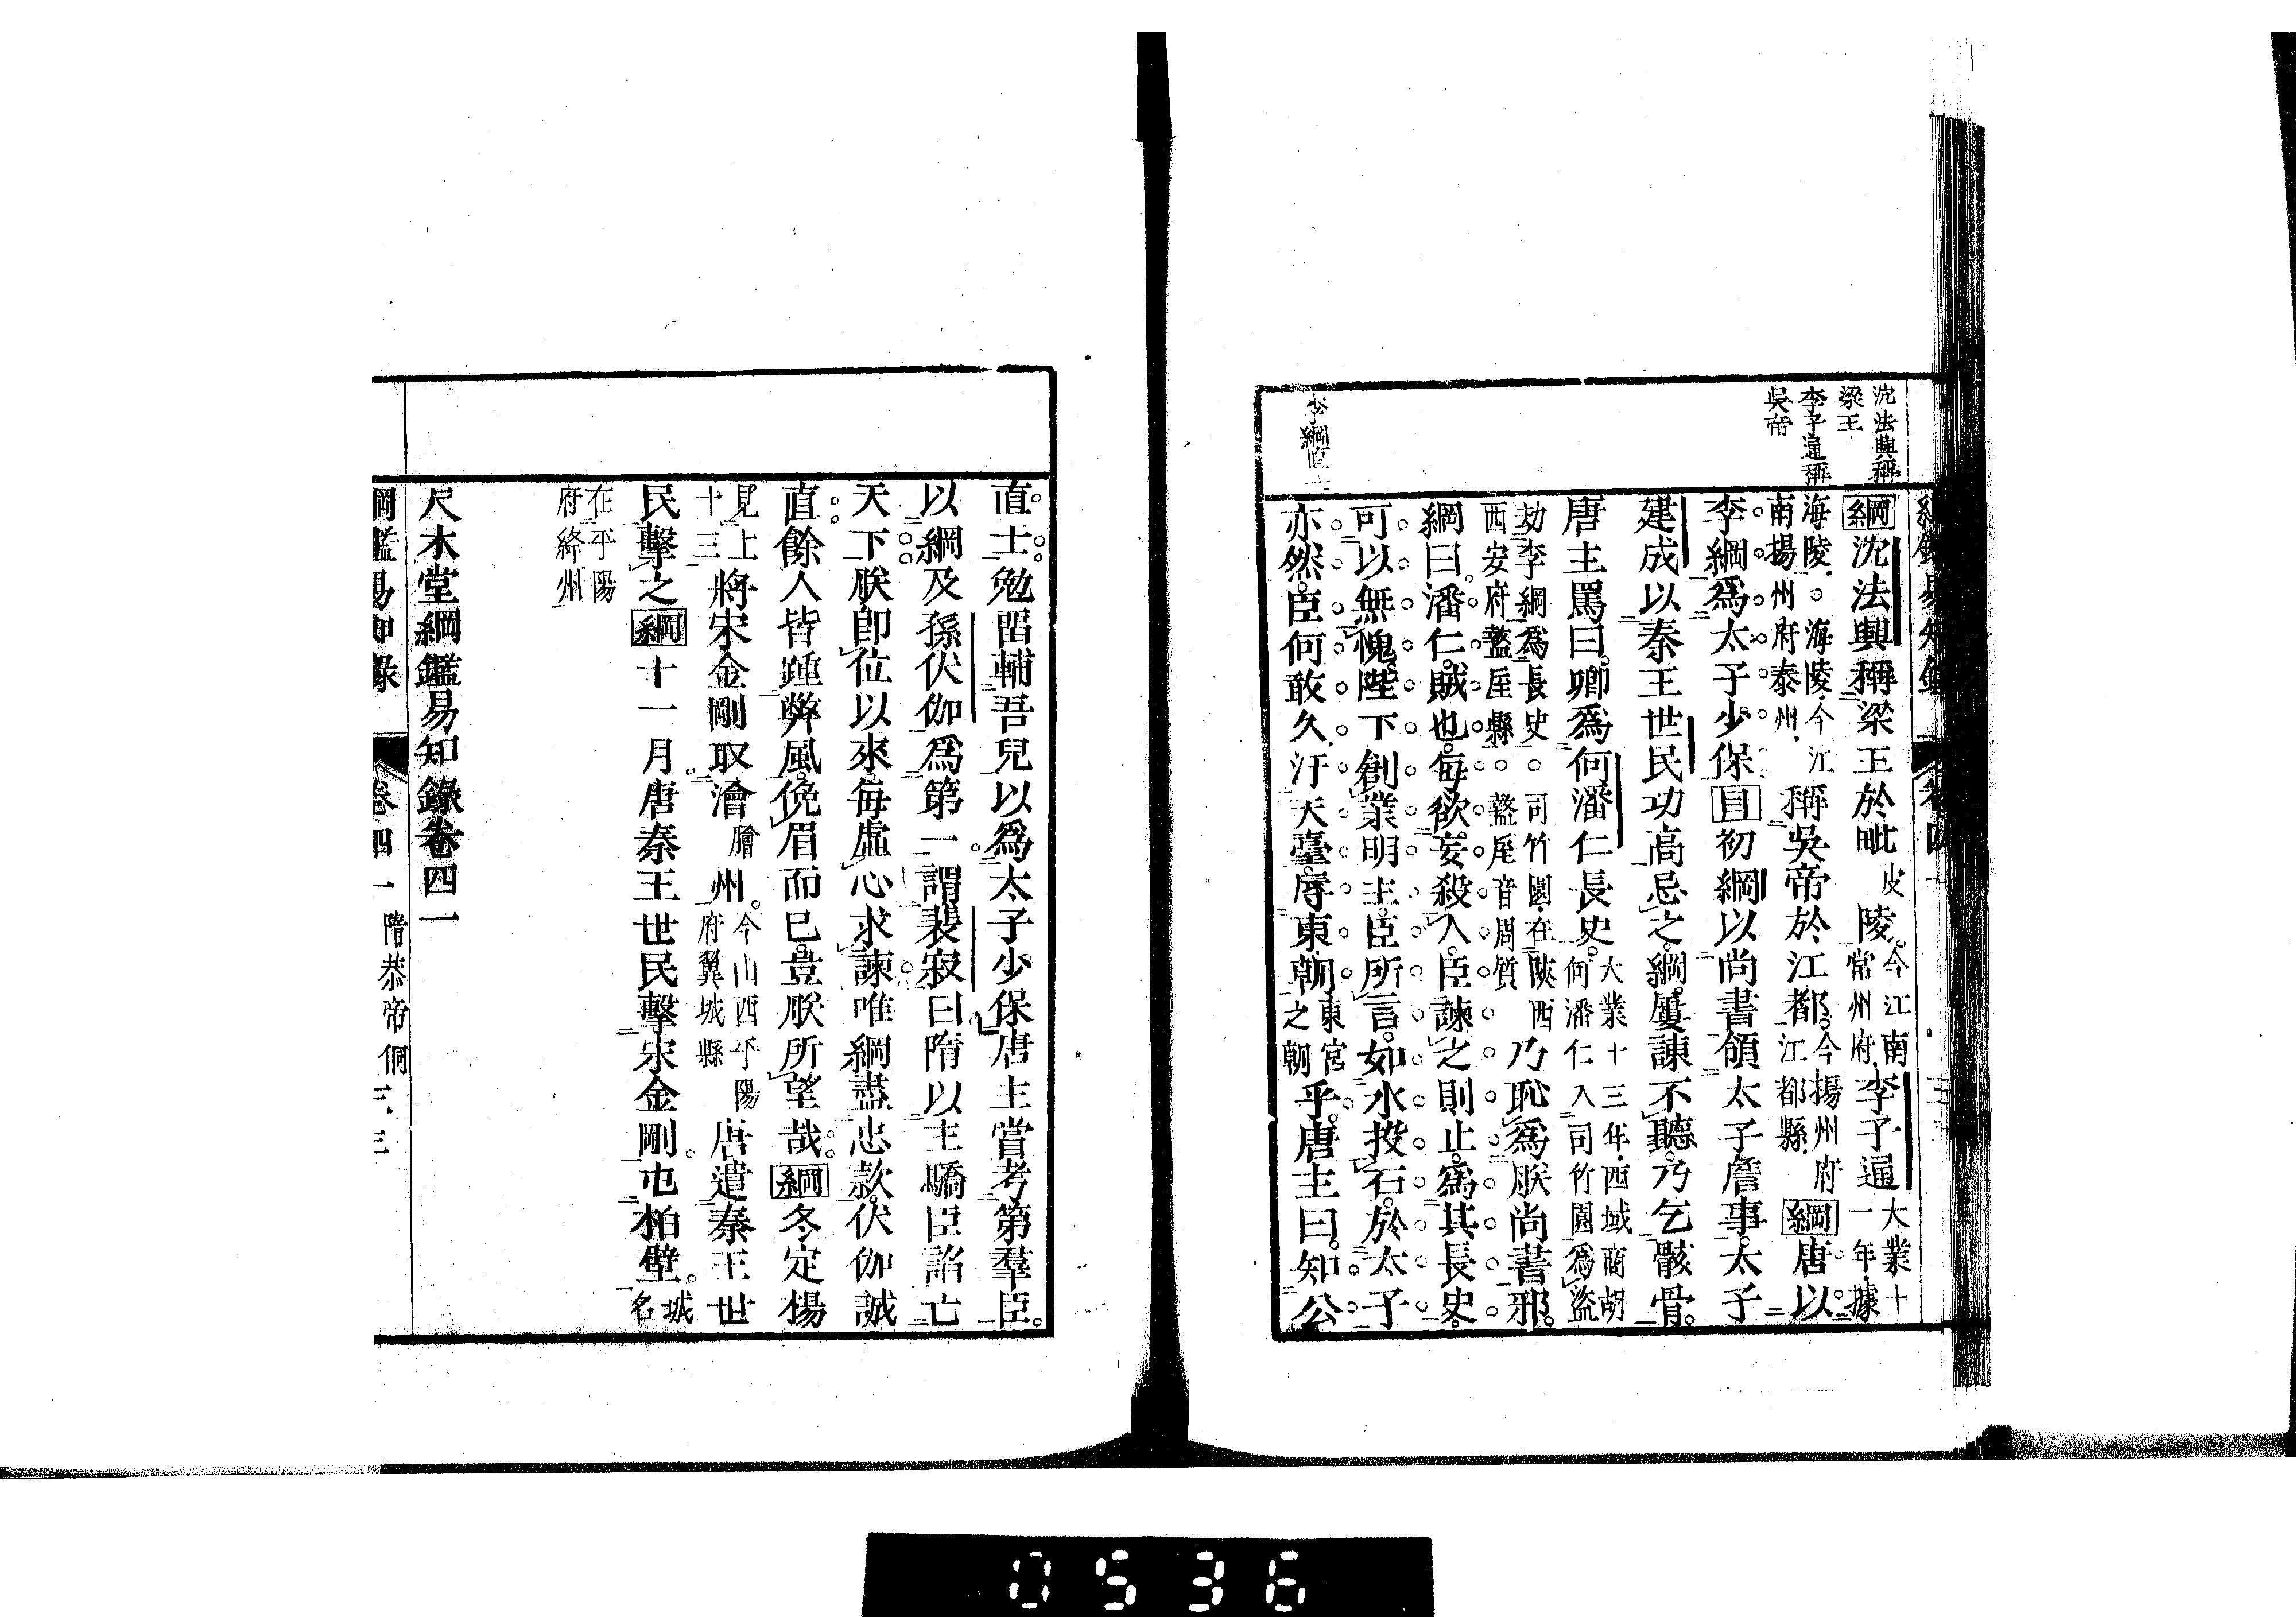 沈法興稱
梁王
李子通稱
吳帝
綱沈法興稱梁王於毗皮陵今江南常州府李子通大業十一年據
海陵海陵今江南揚州府泰州稱吳帝於江都今揚州府江都縣綱唐以
李綱爲太子少保目初綱以尚書領太子詹事太子
建成以秦王世民功高忌之綱屢諫不聽乃乞骸骨
唐主罵曰卿爲何潘仁長史大業十三年西域商胡何潘仁入司竹園爲盜
劫李綱爲長史司竹園在陝西西安府盩厔縣盩厔音周質乃恥爲朕尚書邪
綱曰潘仁賊也每欲妄殺人臣諫之則止爲其長史
可以無愧陛下創業明主臣所言如水投石於太子
亦然臣何敢久汙天臺辱東朝東宮之朝乎唐主曰知公
李綱直士
直士勉留輔吾兒以爲太子少保唐主嘗考第羣臣
以綱及孫伏伽爲第一謂裴寂曰隋以主驕臣諂亡
天下朕卽位以來每虛心求諫唯綱盡忠款伏伽誠
直餘人皆踵弊風俛眉而已豈朕所望哉綱冬定楊
見上十三將宋金剛取澮膾州今山西平陽府翼城縣唐遣秦王世
民擊之綱十一月唐秦王世民擊宋金剛屯柏壁城名
在平陽府絳州
尺木堂綱鑑易知錄卷四一
綱鑑易知錄 卷四一 隋恭帝侗 三三
0536